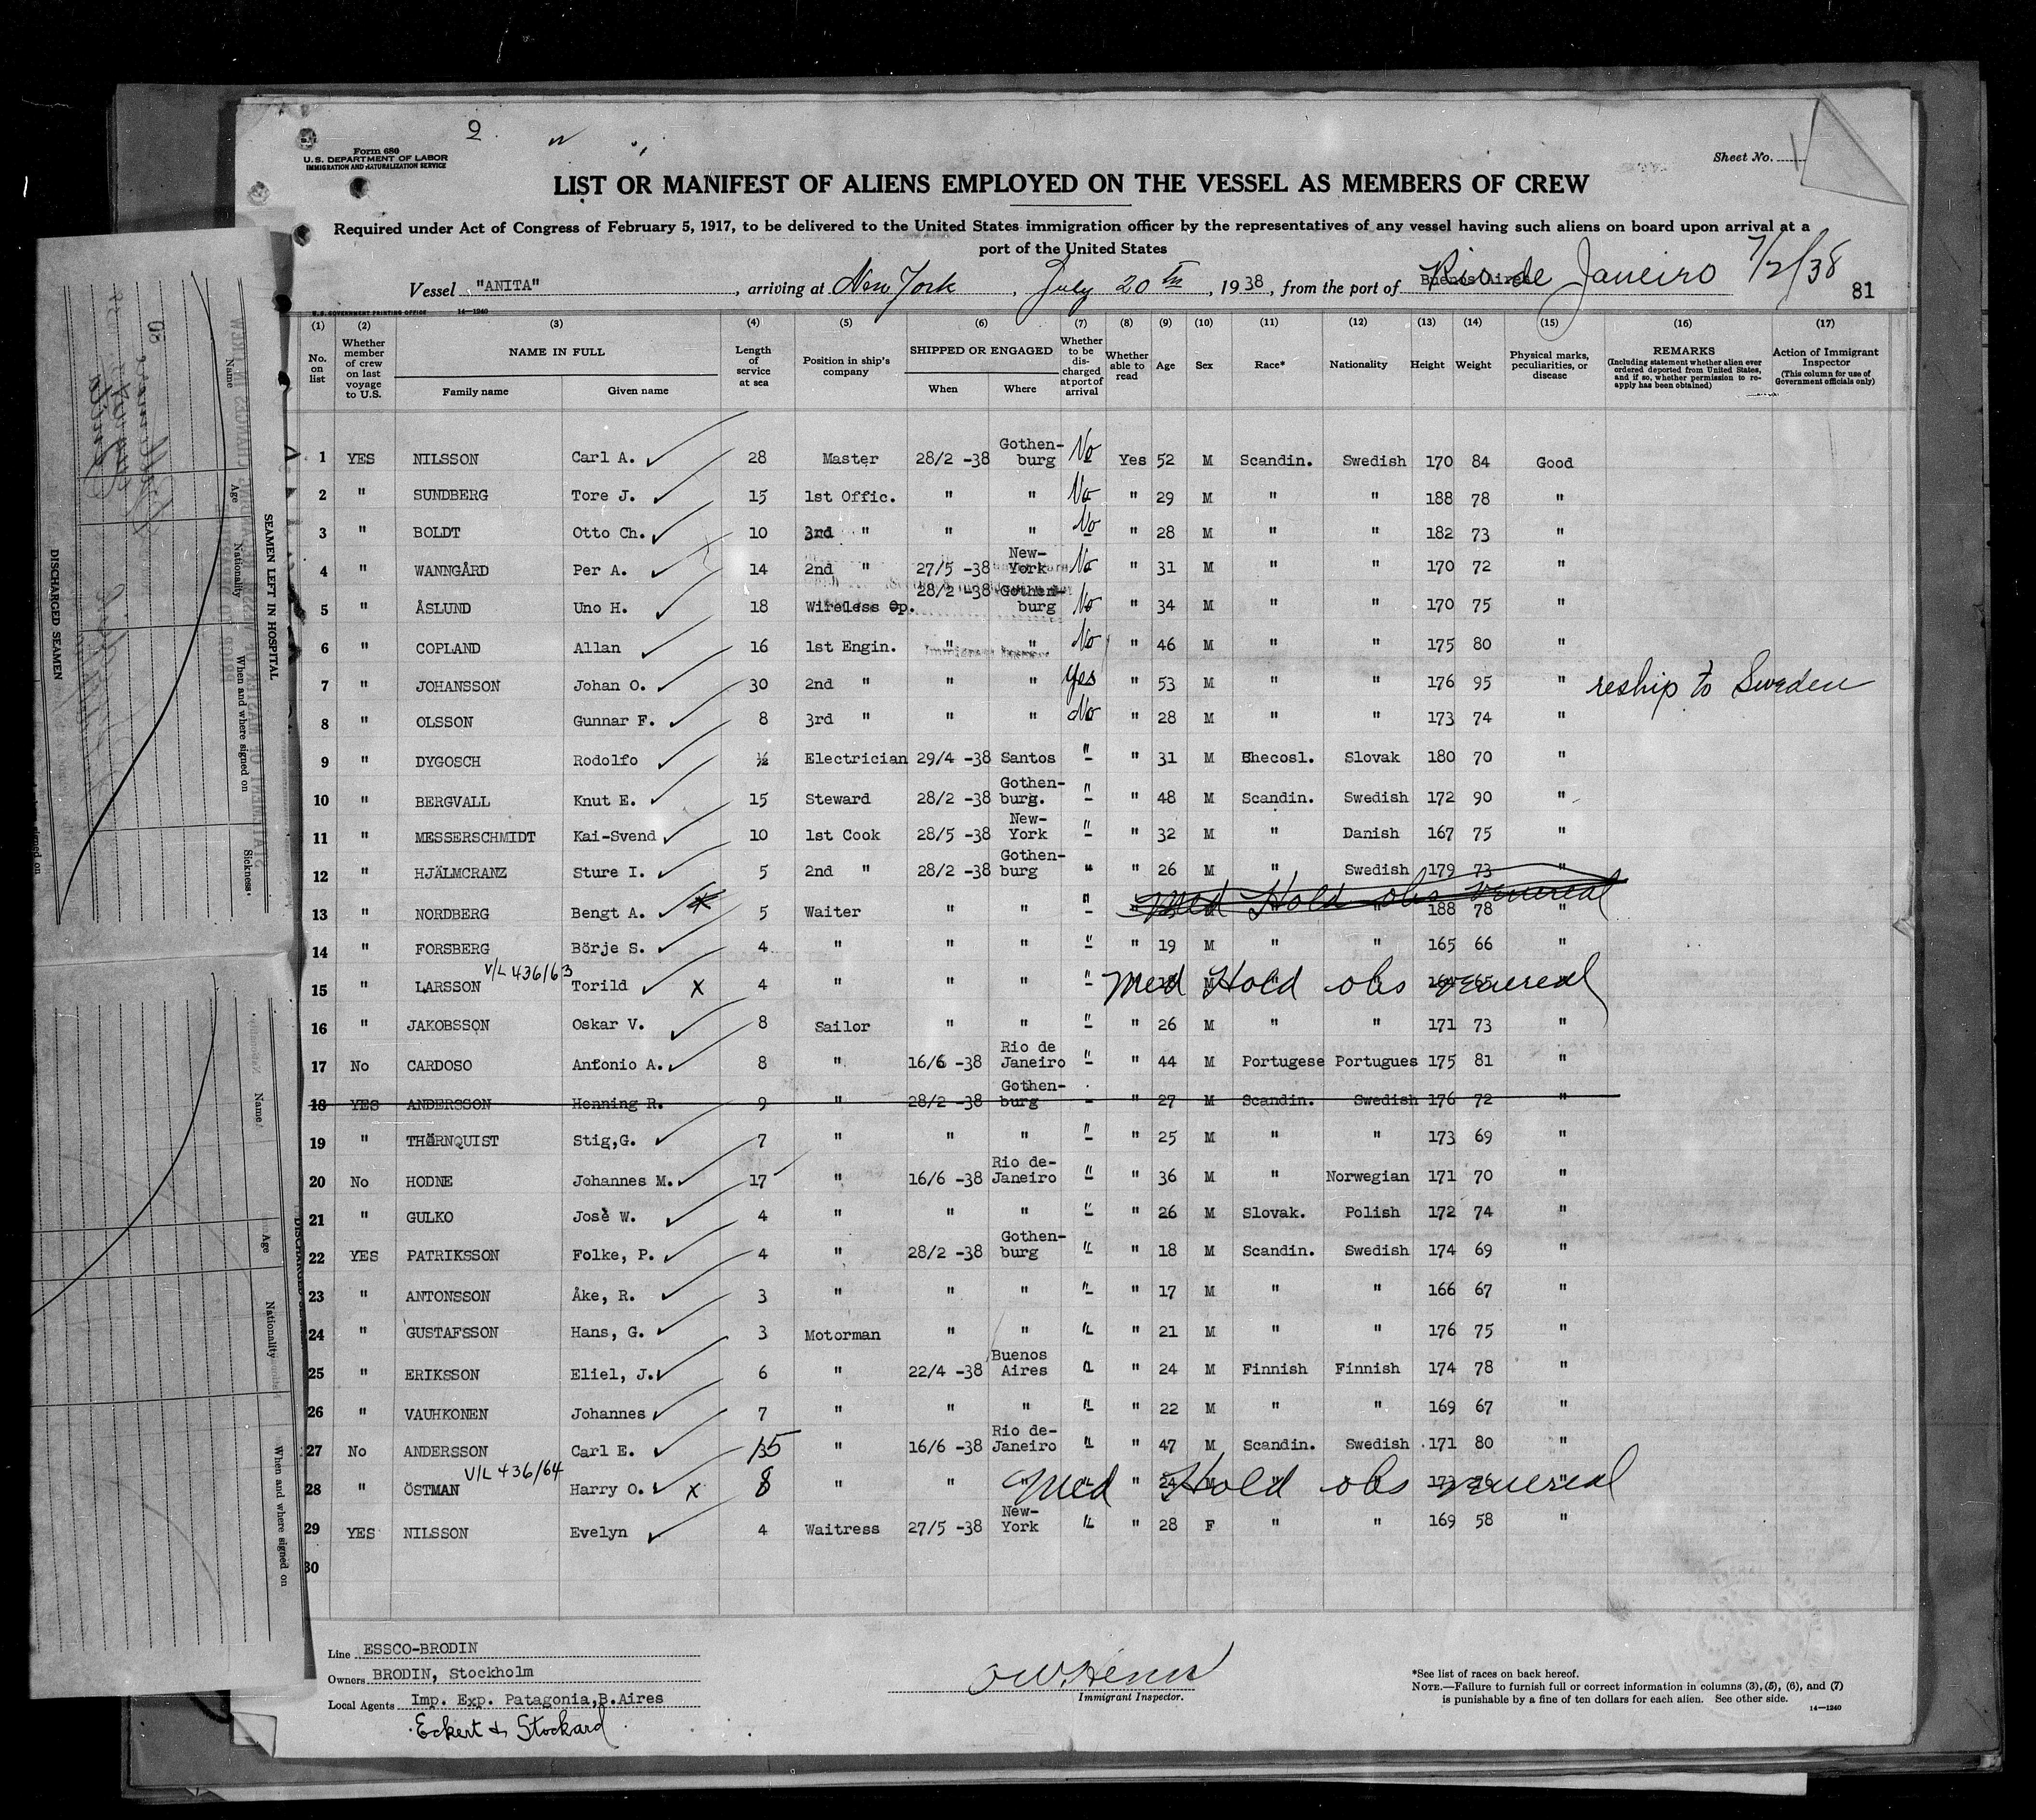 Form 680
U.S. DEPARTMENT OF LABOR
IMMIGRATION AND NATURALIZATION SERVICE
Sheet No.
LIST OR MANIFEST OF ALIENS EMPLOYED ON THE VESSEL AS MEMBERS OF CREW
Required under Act of Congress of February 5, 1917, to be delivered to the United States immigration officer by the representatives of any vessel having such aliens on board upon arrival at a
port of the United States
Vessel "ANITA", arriving at New York, July 20th, 1938, from the port of Rio de Janeiro 7/2/38
81
U.S. GOVERNMENT PRINTING OFFICE 14—1240
(1) (2) (3) (4) (5) (6) (7) (8) (9) (10) (11) (12) (13) (14) (15) (16) (17)
No. on list
Whether member of crew on last voyage to U.S.
NAME IN FULL
Family name
Given name
Length of service at sea
Position in ship's company
SHIPPED OR ENGAGED
When
Where
Whether to be discharged at port of arrival
Whether able to read
Age
Sex
Race*
Nationality
Height
Weight
Physical marks, peculiarities, or disease
REMARKS
(Including statement whether alien ever ordered deported from United States, and if so, whether permission to reapply has been obtained)
Action of Immigrant Inspector
(This column for use of Government officials only)
1 YES NILSSON Carl A. 28 Master 28/2 -38 Gothenburg No Yes 52 M Scandin. Swedish 170 84 Good
2 " SUNDBERG Tore J. 15 1st Offic. " " No " 29 M " " 188 78 "
3 " BOLDT Otto Ch. 10 3rd " " " No " 28 M " " 182 73 "
4 " WANNGÅRD Per A. 14 2nd " 27/5 -38 New-York No " 31 M " " 170 72 "
5 " ÅSLUND Uno H. 18 Wireless Op. 28/2 -38 Gothenburg No " 34 M " " 170 75 "
6 " COPLAND Allan 16 1st Engin. " " No " 46 M " " 175 80 "
7 " JOHANSSON Johan O. 30 2nd " " " Yes " 53 M " " 176 95 " reship to Sweden
8 " OLSSON Gunnar F. 8 3rd " " " No " 28 M " " 173 74 "
9 " DYGOSCH Rodolfo ½ Electrician 29/4 -38 Santos " " 31 M Ehecosl. Slovak 180 70 "
10 " BERGVALL Knut E. 15 Steward 28/2 -38 Gothenburg. " " 48 M Scandin. Swedish 172 90 "
11 " MESSERSCHMIDT Kai-Svend 10 1st Cook 28/5 -38 New-York " " 32 M " Danish 167 75 "
12 " HJÄLMCRANZ Sture I. 5 2nd " 28/2 -38 Gothenburg " " 26 M " Swedish 179 73 "
13 " NORDBERG Bengt A. x 5 Waiter " " " " Med Hold obs venereal 188 78 "
14 " FORSBERG Börje S. 4 " " " " " 19 M " " 165 66 "
V/L 436/63
15 " LARSSON Torild x 4 " " " " Med Hold obs venereal
16 " JAKOBSSON Oskar V. 8 Sailor " " " " 26 M " " 171 73 "
17 No CARDOSO Antonio A. 8 " 16/6 -38 Rio de Janeiro " " 44 M Portugese Portugues 175 81 "
18 YES ANDERSSON Henning R. 9 " 28/2 -38 Gothenburg - " 27 M Scandin. Swedish 176 72 "
19 " THÖRNQUIST Stig,G. 7 " " " " " 25 M " " 173 69 "
20 No HODNE Johannes M. 17 " 16/6 -38 Rio de-Janeiro " " 36 M " Norwegian 171 70 "
21 " GULKO Josè W. 4 " " " " " 26 M Slovak. Polish 172 74 "
22 YES PATRIKSSON Folke, P. 4 " 28/2 -38 Gothenburg " " 18 M Scandin. Swedish 174 69 "
23 " ANTONSSON Åke, R. 3 " " " " " 17 M " " 166 67 "
24 " GUSTAFSSON Hans, G. 3 Motorman " " " " 21 M " " 176 75 "
25 " ERIKSSON Eliel, J. 6 " 22/4 -38 Buenos Aires " " 24 M Finnish Finnish 174 78 "
26 " VAUHKONEN Johannes 7 " " " " " 22 M " " 169 67 "
27 No ANDERSSON Carl E. 15 " 16/6 -38 Rio de-Janeiro " " 47 M Scandin. Swedish 171 80 "
V/L 436/64
28 " ÖSTMAN Harry O. x 8 " " " " " 24 M Med Hold obs venereal
29 YES NILSSON Evelyn 4 Waitress 27/5 -38 New-York " " 28 F " " 169 58 "
30
Line ESSCO-BRODIN
Owners BRODIN, Stockholm
Local Agents Imp. Exp. Patagonia,B.Aires
Eckert & Stockard
Immigrant Inspector.
*See list of races on back hereof.
NOTE.—Failure to furnish full or correct information in columns (3), (5), (6), and (7)
is punishable by a fine of ten dollars for each alien. See other side.
14—1240
SEAMEN LEFT IN HOSPITAL
Name
Age
Nationality
When and where signed on
Sickness
DISCHARGED SEAMEN
Name
Age
Nationality
When and where signed on